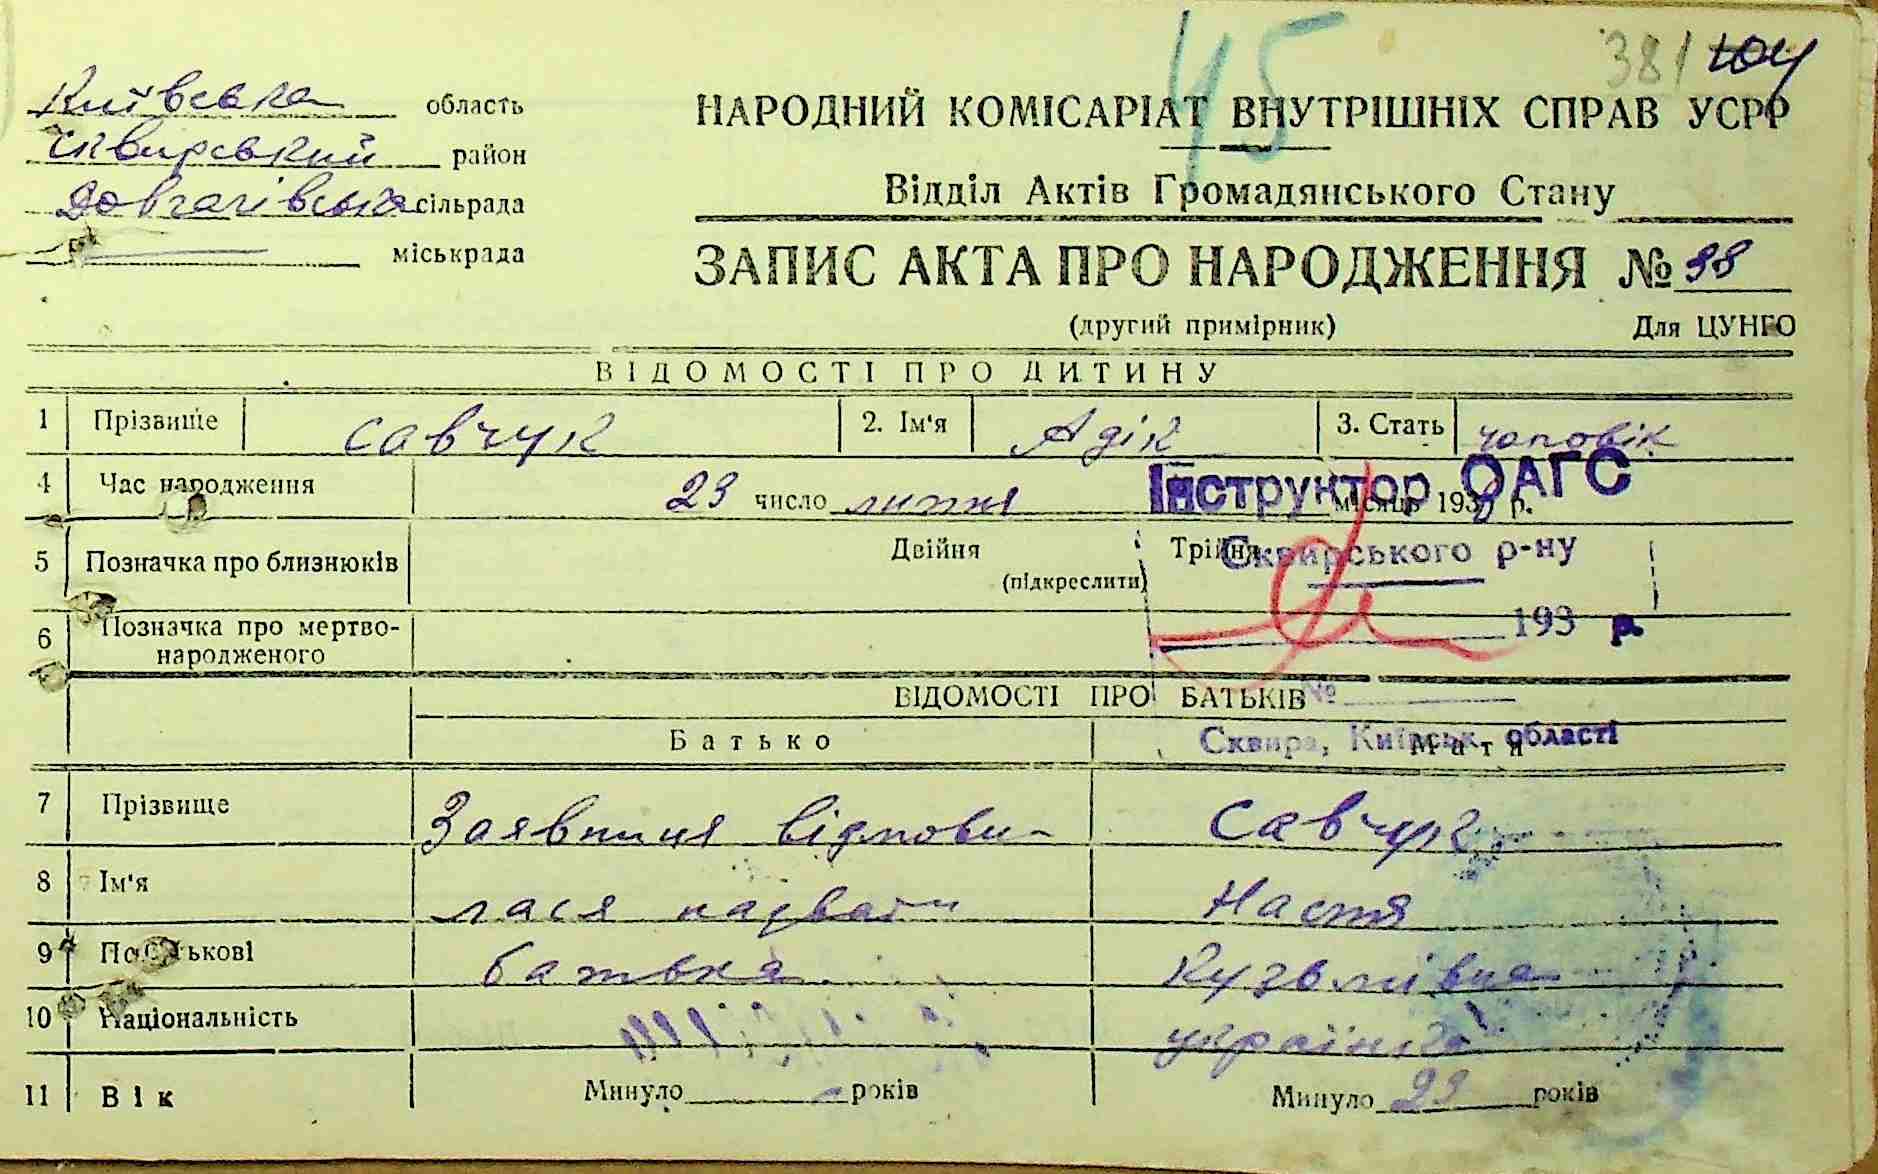 45
381 104
Київська область
Сквирський район
Довгалівська сільрада
міськрада
НАРОДНИЙ КОМІСАРІАТ ВНУТРІШНІХ СПРАВ УСРР
Відділ Актів Громадянського Стану
ЗАПИС АКТА ПРО НАРОДЖЕННЯ № 38
(другий примірник) Для ЦУНГО
ВІДОМОСТІ ПРО ДИТИНУ
1 Прізвище Савчук 2. Ім'я Адік 3. Стать чоловік
4 Час народження 23 число липня місяць 193 р.
Інструктор ОАГС
5 Позначка про близнюків Двійня Трійня
(підкреслити)
Сквирського р-ну
6 Позначка про мертво-
народженого
193 р.
ВІДОМОСТІ ПРО БАТЬКІВ
№
Батько Мати
Сквира, Київськ. області
7 Прізвище Заявниця відмови- Савчук
8 Ім'я лася назвати Настя
9 По батькові батька Кузьмівна
10 Національність українка
11 Вік Минуло - років Минуло 23 років